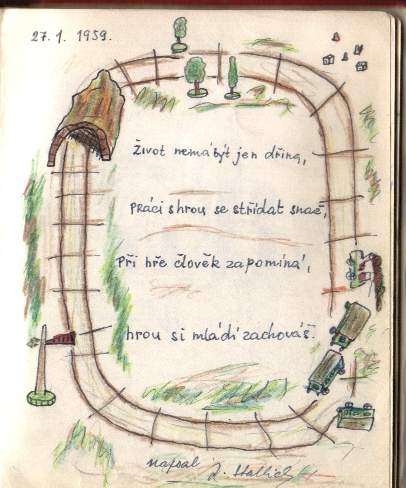 27.1. 1959.
Život nemá být jen dřina,
Práci s hrou se střídat snaž,
Při hře člověk zapomíná,
hrou si mládí zachováš.
napsal J.